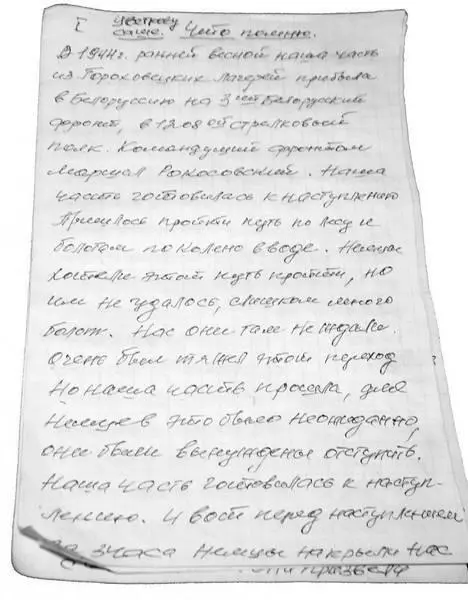 I Цветкову
саше. Что помню.
В 1944г. ранней весной наша часть
из Гороховецких лагерей прибыла
в Белоруссию на 3ий Белорусский
фронт, в 1208ой стрелковый
полк. Командущий фронтом
Маршал Рокосовский. Наша
часть готовилась к наступлению
Пришлось пройти путь по лесу и
болотам по колено в воде. Немцы
хотели этот путь пройти, но
им не удалось, слишком много
болот. Нас они там не ждали.
Очень был тяжел этот переход
Но наша часть прошла, для
Немцев это было неожиданно,
они были вынуждены отступить.
Наша часть готовилась к наступ-
лению. И вот перед наступлением
за 3 часа немцы накрыли нас